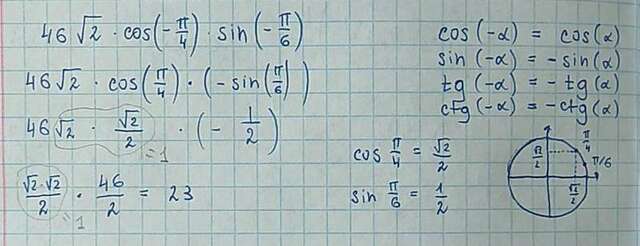 46√2 · cos(-π/4) · sin(-π/6)
46√2 · cos(π/4) · (-sin(π/6))
46√2 · √2/2 · (- 1/2)
=1
√2·√2/2 · 46/2 = 23
=1
cos(-α) = cos(α)
sin(-α) = -sin(α)
tg(-α) = -tg(α)
ctg(-α) = -ctg(α)
cos π/4 = √2/2
sin π/6 = 1/2
π/4
√2/2
π/6
√2/2